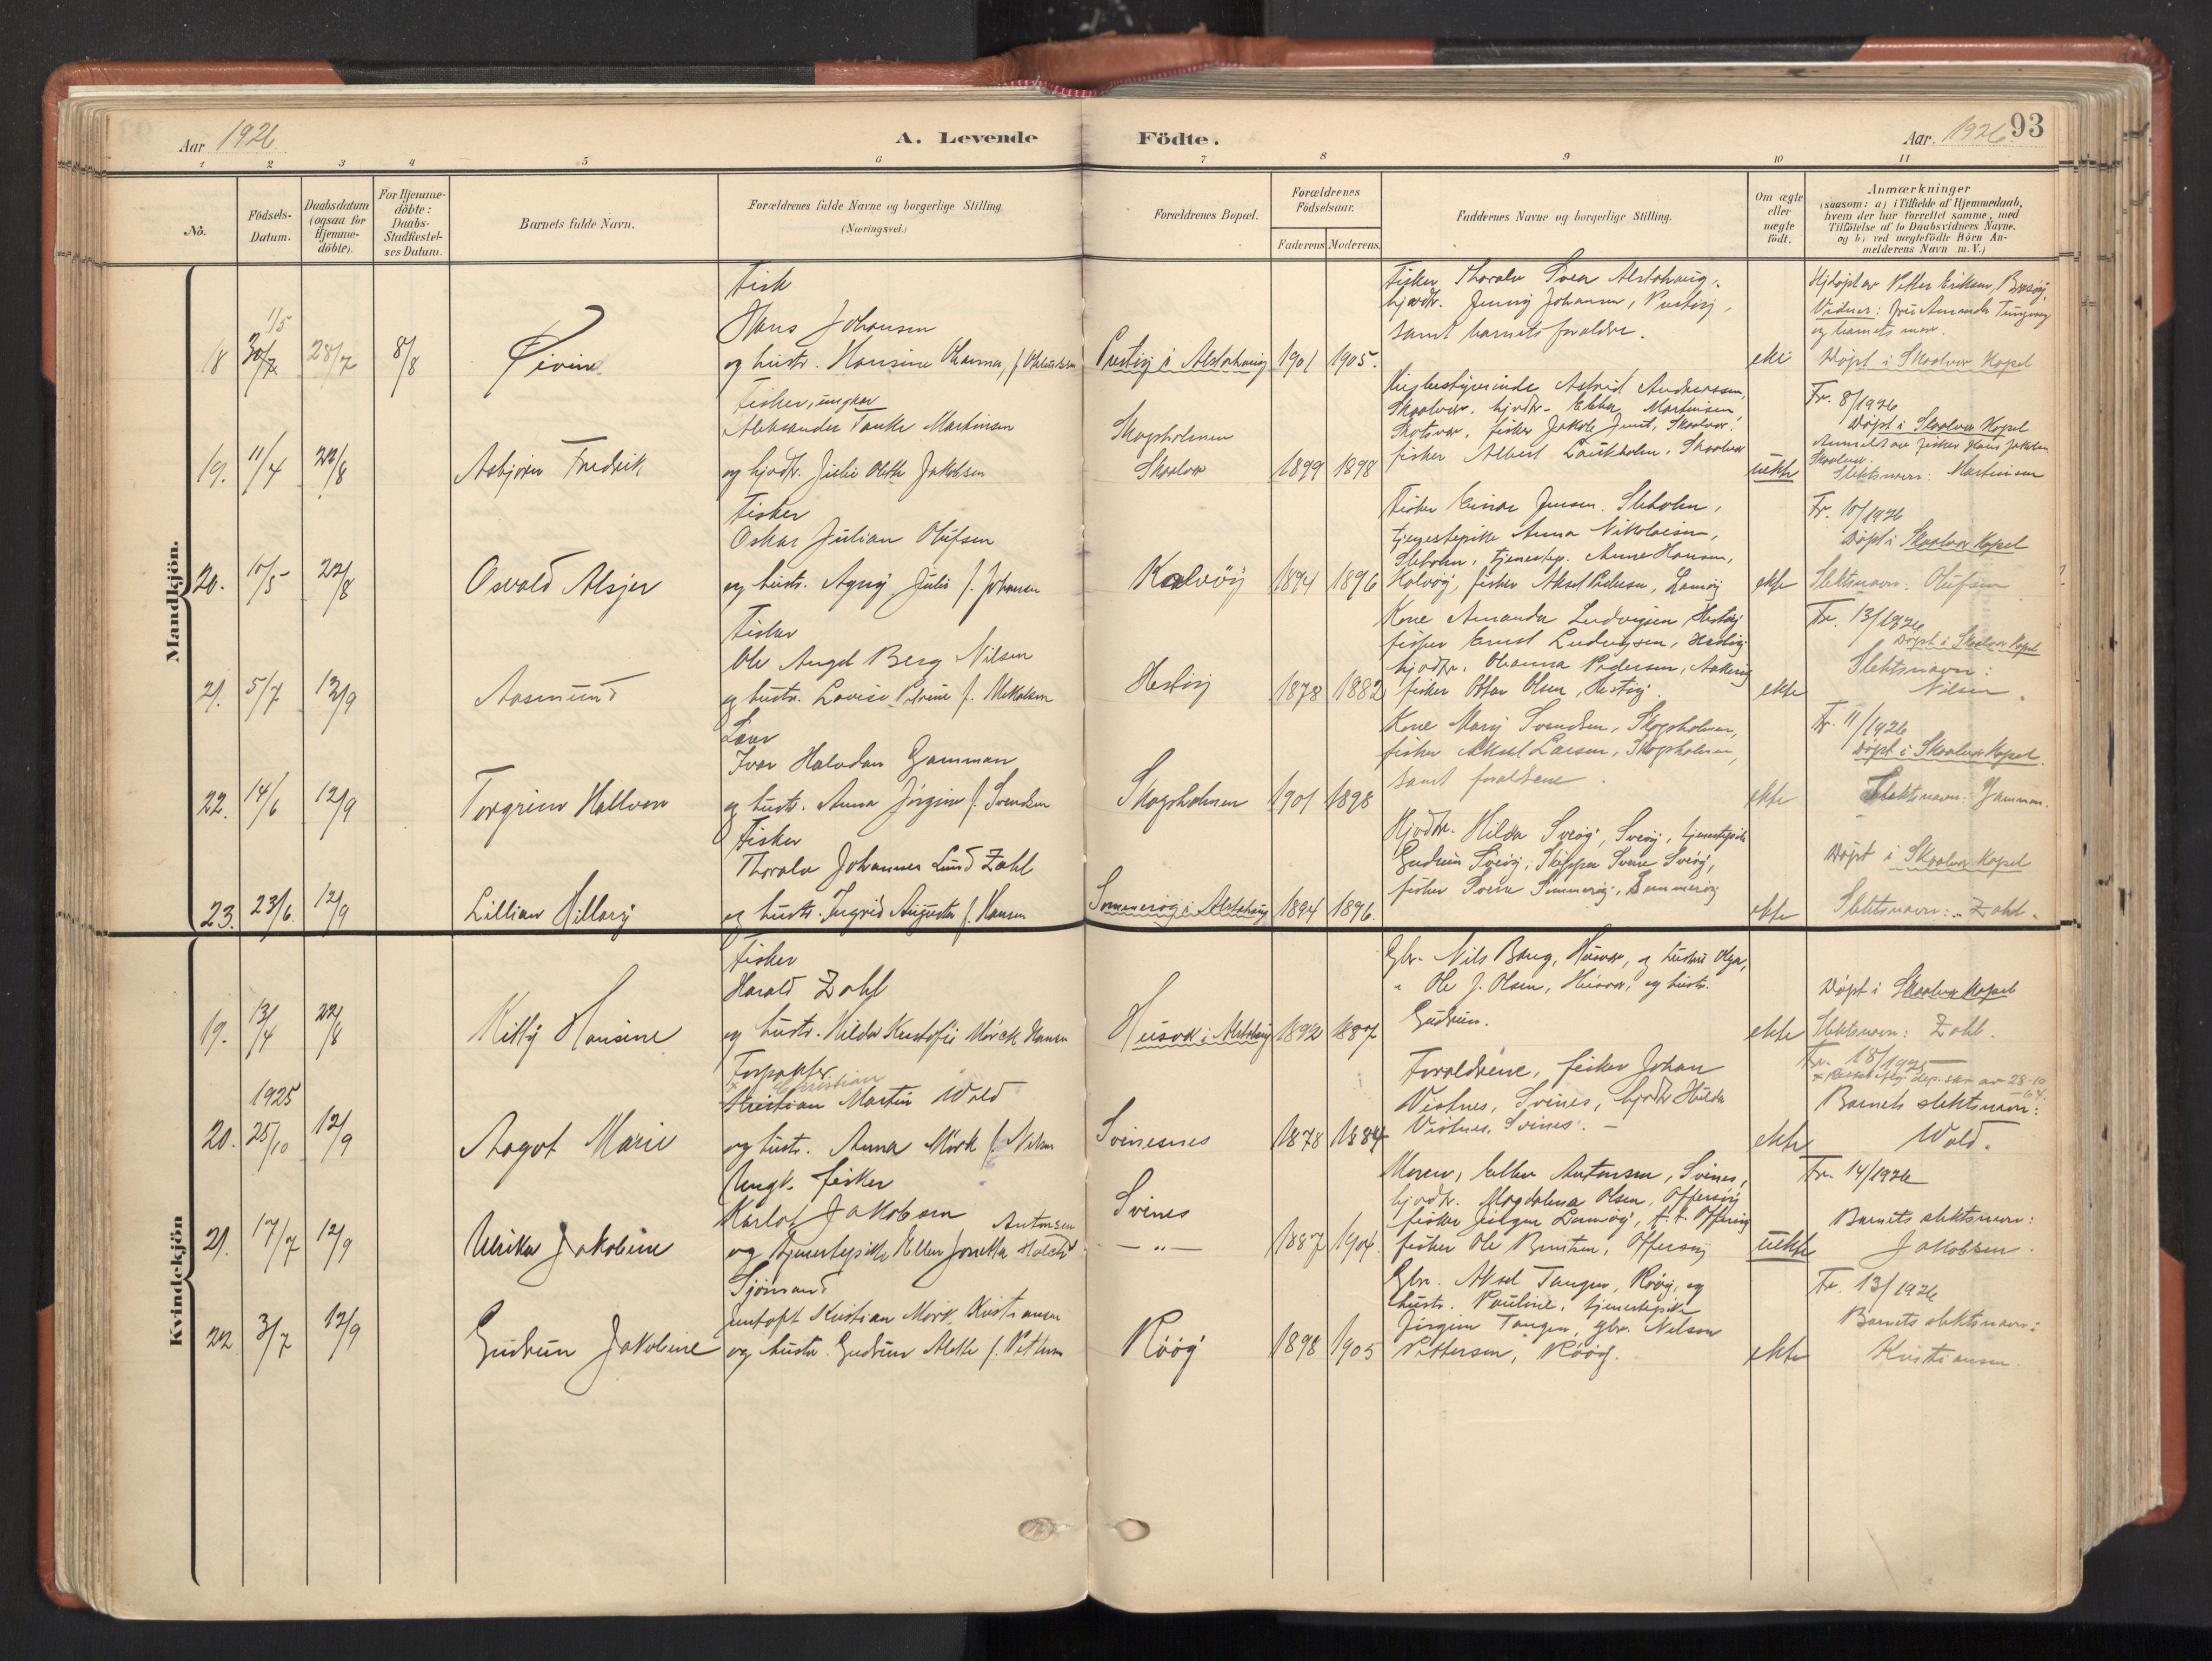 Aar 1926
A. Levende Födte.
Aar. 1926.
93
1 2 3 4 5 6 7 8 9 10 11
No.
Födsels-Datum.
Daabsdatum (ogsaa for Hjemme-döbte).
For Hjemme-döbte: Daabs-Stadfæstel-ses Datum.
Barnets fulde Navn.
Forældrenes fulde Navne og borgerlige Stilling.
(Næringsvei.)
Forældrenes Bopæl.
Forældrenes Födselsaar.
Faderens Moderens
Faddernes Navne og borgerlige Stilling.
Om ægte eller uægte födt.
Anmærkninger
(saasom: a) i Tilfælde af Hjemmedaab, hvem der har forrettet samme, med Tilföielse af to Daabsvidners Navne, og b) ved uægtefödte Börn An-melderens Navn m. V.)
Mandkjön.
18 1/5 30/7 28/7 8/8
Eivind
Fisk
Hans Johansen
og hustr. Hansine
Prestöy i Alstahaug
1901 1905.
Fisker Thoralv Svea Alstahaug,
hjvdtr. Jenny Johansen, Prestöy,
samt barnets foreldre.
ekte
Hjdöpt av Petter Eriksen, Brasöy,
Vidner: fru Amanda
og barnets mor.
Döpt i Skaalvær Kapel
19. 11/4 22/8
Asbjørn Fredrik
Fisker, ungkar
Aleksander Tanke Martinsen
og hjvdtr. Julie Olette Jakobsen
Skogsholmen
Skaalvær
1899 1898
Astrid Andreassen,
Skaalvær, hjvdtr. Ebba Martinsen,
fisker Jakob Juul, Skaalvær
fisker Albert Laukholm, Skaalvær
uekte
Fr. 8/1926
Döpt i Skaalvær Kapel
Anmeldt av fisker Hans Jakobsen
Skaalvær.
Slektsnavn: Martinsen
20. 10/5 22/8
Osvald Alsjer
Fisker
Oskar Julian Olufsen
og hustr. Agnes Julie f. Johansen
Kalvöy
1894 1896
Fisker Einar Jensen, Sleholm,
tjenestepike Anna Nikolaisen,
Sleholm, tjenestep. Anne Hansen,
Kalvöy, fisker Aksel Pedersen, Lamöy
ekte
Fr. 10/1926
Döpt i Skaalvær Kapel
Slektsnavn: Olufsen
21. 5/7 12/9
Aasmund
Fisker
Ole Angel Berg Nilsen
og hustr. Lovise Petrine f. Mikalsen
Hestöy
1878 1882
Kone Amanda Ludvigsen, Hestöy
fisker Ernst Ludvigsen, Hestöy
hjvdtr. Olianna Pedersen,
fisker Ottar Olsen, Hestöy.
ekte
Fr. 13/1926
Döpt i Skaalvær Kapel
Slektsnavn:
Nilsen.
22. 14/6 12/9
Torgrim Hallvor
Ivar Halvdan Gamman
og hustr. Anna Jörgine f. Svendsen
Skogsholmen
1901 1898
Kone Mary Svendsen, Skogsholmen,
fisker Aksel Larsen, Skogsholmen,
samt foreldrene.
ekte
Fr. 11/1926
Döpt i Skaalvær Kapel.
Slektsnavn: Gamman.
23. 23/6. 12/9
Lillian Hillary
Fisker
Thoralv Johannes Lund Zahl
og hustr. Ingrid Augusta f. Hansen
Sommeröy i Alstahaug
1894 1896.
Hjvdtr. Hilda Sveöy, Sveöy, tjenestepike
Gudrun Sveöy, Skipper Svein Sveöy,
fisker Svein Sommeröy, Sommeröy
ekte
Döpt i Skaalvær Kapel
Slektsnavn: Zahl.
Kvindekjön
19. 13/4 22/8
Killy Hansine
Fisker
Harald Zahl
og hustr. Hilda Kristofie Mörck Hansen
Husvær i Alstahaug
1892 1887
Gbr. Nils Bang, Husvær, og hustru Olga,
" Ole J. Olsen, Husvær, og hustr.
Gudrun.
ekte
Döpt i Skaalvær Kapel
Slektsnavn: Zahl.
1925
20. 25/10 12/9
Aagot Marie
Forpakter
× Christian
Kristian Martin Wold
og hustr. Anna Mörk f. Nilsen
Svinesnes
1878 1884
Foreldrene, fisker Johan
Vistnes, Svines, hjvdtr Hulda
Vistnes, Svines. –
ekte
Fr. 18/1925
× Rettet iflg. dep. skr. av 28-10
-64.
Barnets slektsnavn:
Wold.
21. 17/7 12/9
Ulrikke Jakobine
Ungk. fisker
Karlot Jakobsen
Antonsen
og tjenestepike Ellen Jonetta
Svines
– " –
1887 1904.
Moren, Ellen Antonsen, Svines,
hjvdtr. Magdalena Olsen, Offersöy
fisker Jörgen Lamöy, t. t. Offersöy
fisker Ole Berntsen, Offersöy
uekte
Fr. 14/1926
Barnets slektsnavn:
Jakobsen.
22 3/7 12/9
Gudrun Jakobine
Sjömand
Jentoft Kristian Mörk Kristiansen
og hustr. Gudrun Alette f. Pettersen
Rööy
1898 1905
Gbr. Aksel Tangen, Rööy, og
hustr. Pauline, tjenestepike
Jörgine Tangen, gbr. Nelson
Pettersen, Rööy.
ekte
Fr. 13/1926
Barnets slektsnavn:
Kristiansen.